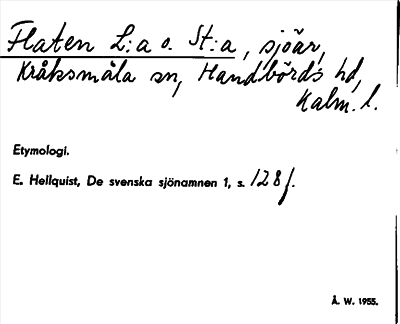 Flaten L:a o. St:a, sjöar,
Kråksmåla sn, Handbörds hd,
Kalm. l.
Etymologi.
E. Hellquist, De svenska sjönamnen 1, s. 128 f.
Å. W. 1955.